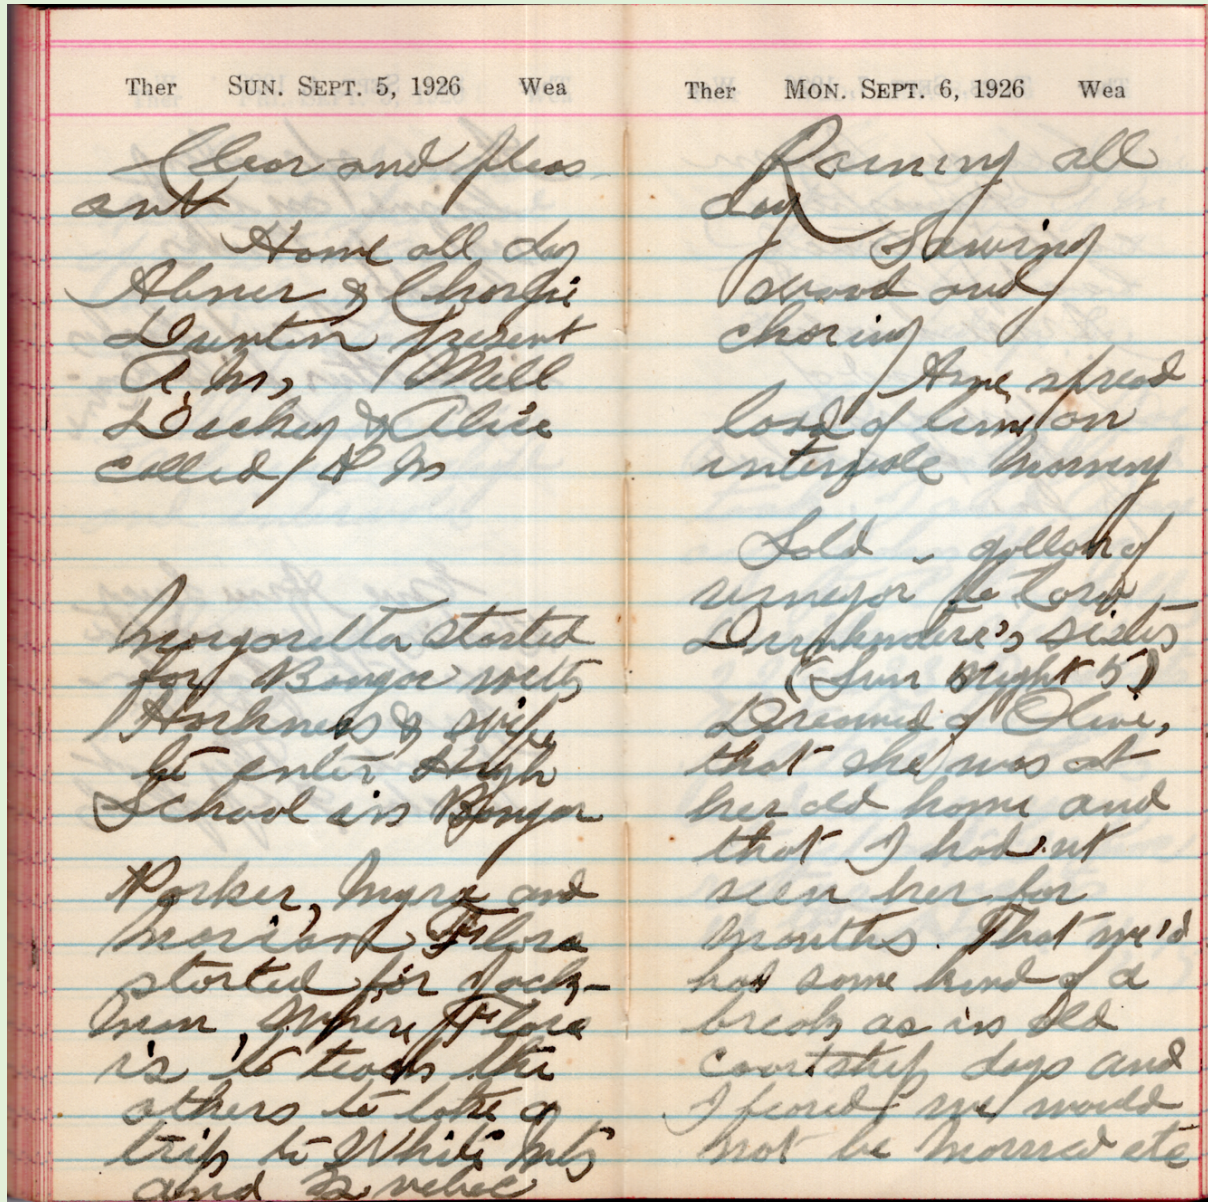 Ther SUN. SEPT. 5, 1926 Wea
Clear and pleas-
ant
Home all day
Abner & Charlie
Dunton present
A.M., Mill
Dickey & Alice
called P M
Margaretta started
for Bangor with
Harkness & wife
to enter High
School in Bangor
Parker, Myra and
Marian Flora
started for Jack-
man, Where Flora
is to teach the
others to take a
trip to White Mts
and Quebec
Ther MON. SEPT. 6, 1926 Wea
Raining all
day Sawing
wood and
choring
Arne spread
load of lime on
intervale Morning
Sold - gallon of
vinegar to Cora
Drinkwater's sister
(Sun Night 5)
Dreamed of Olive,
that she was at
her old home and
that I had.nt
seen her for
months. That we'd
had some kind of a
break as in old
courtship days and
I feared we would
not be married etc